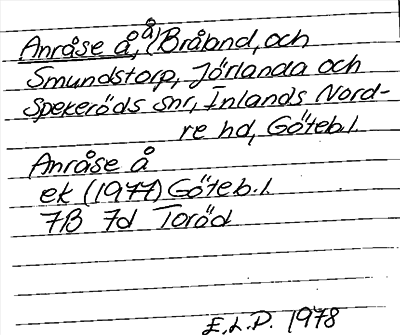 Anråse å, å (Bråland, och
Smundstorp, Jörlanda och
Spekeröds snr, Inlands Nord-
re hd, Göteb.l.
Anråse å
ek (1977) Göteb.l.
7B 7d Toröd
E.L.P. 1978